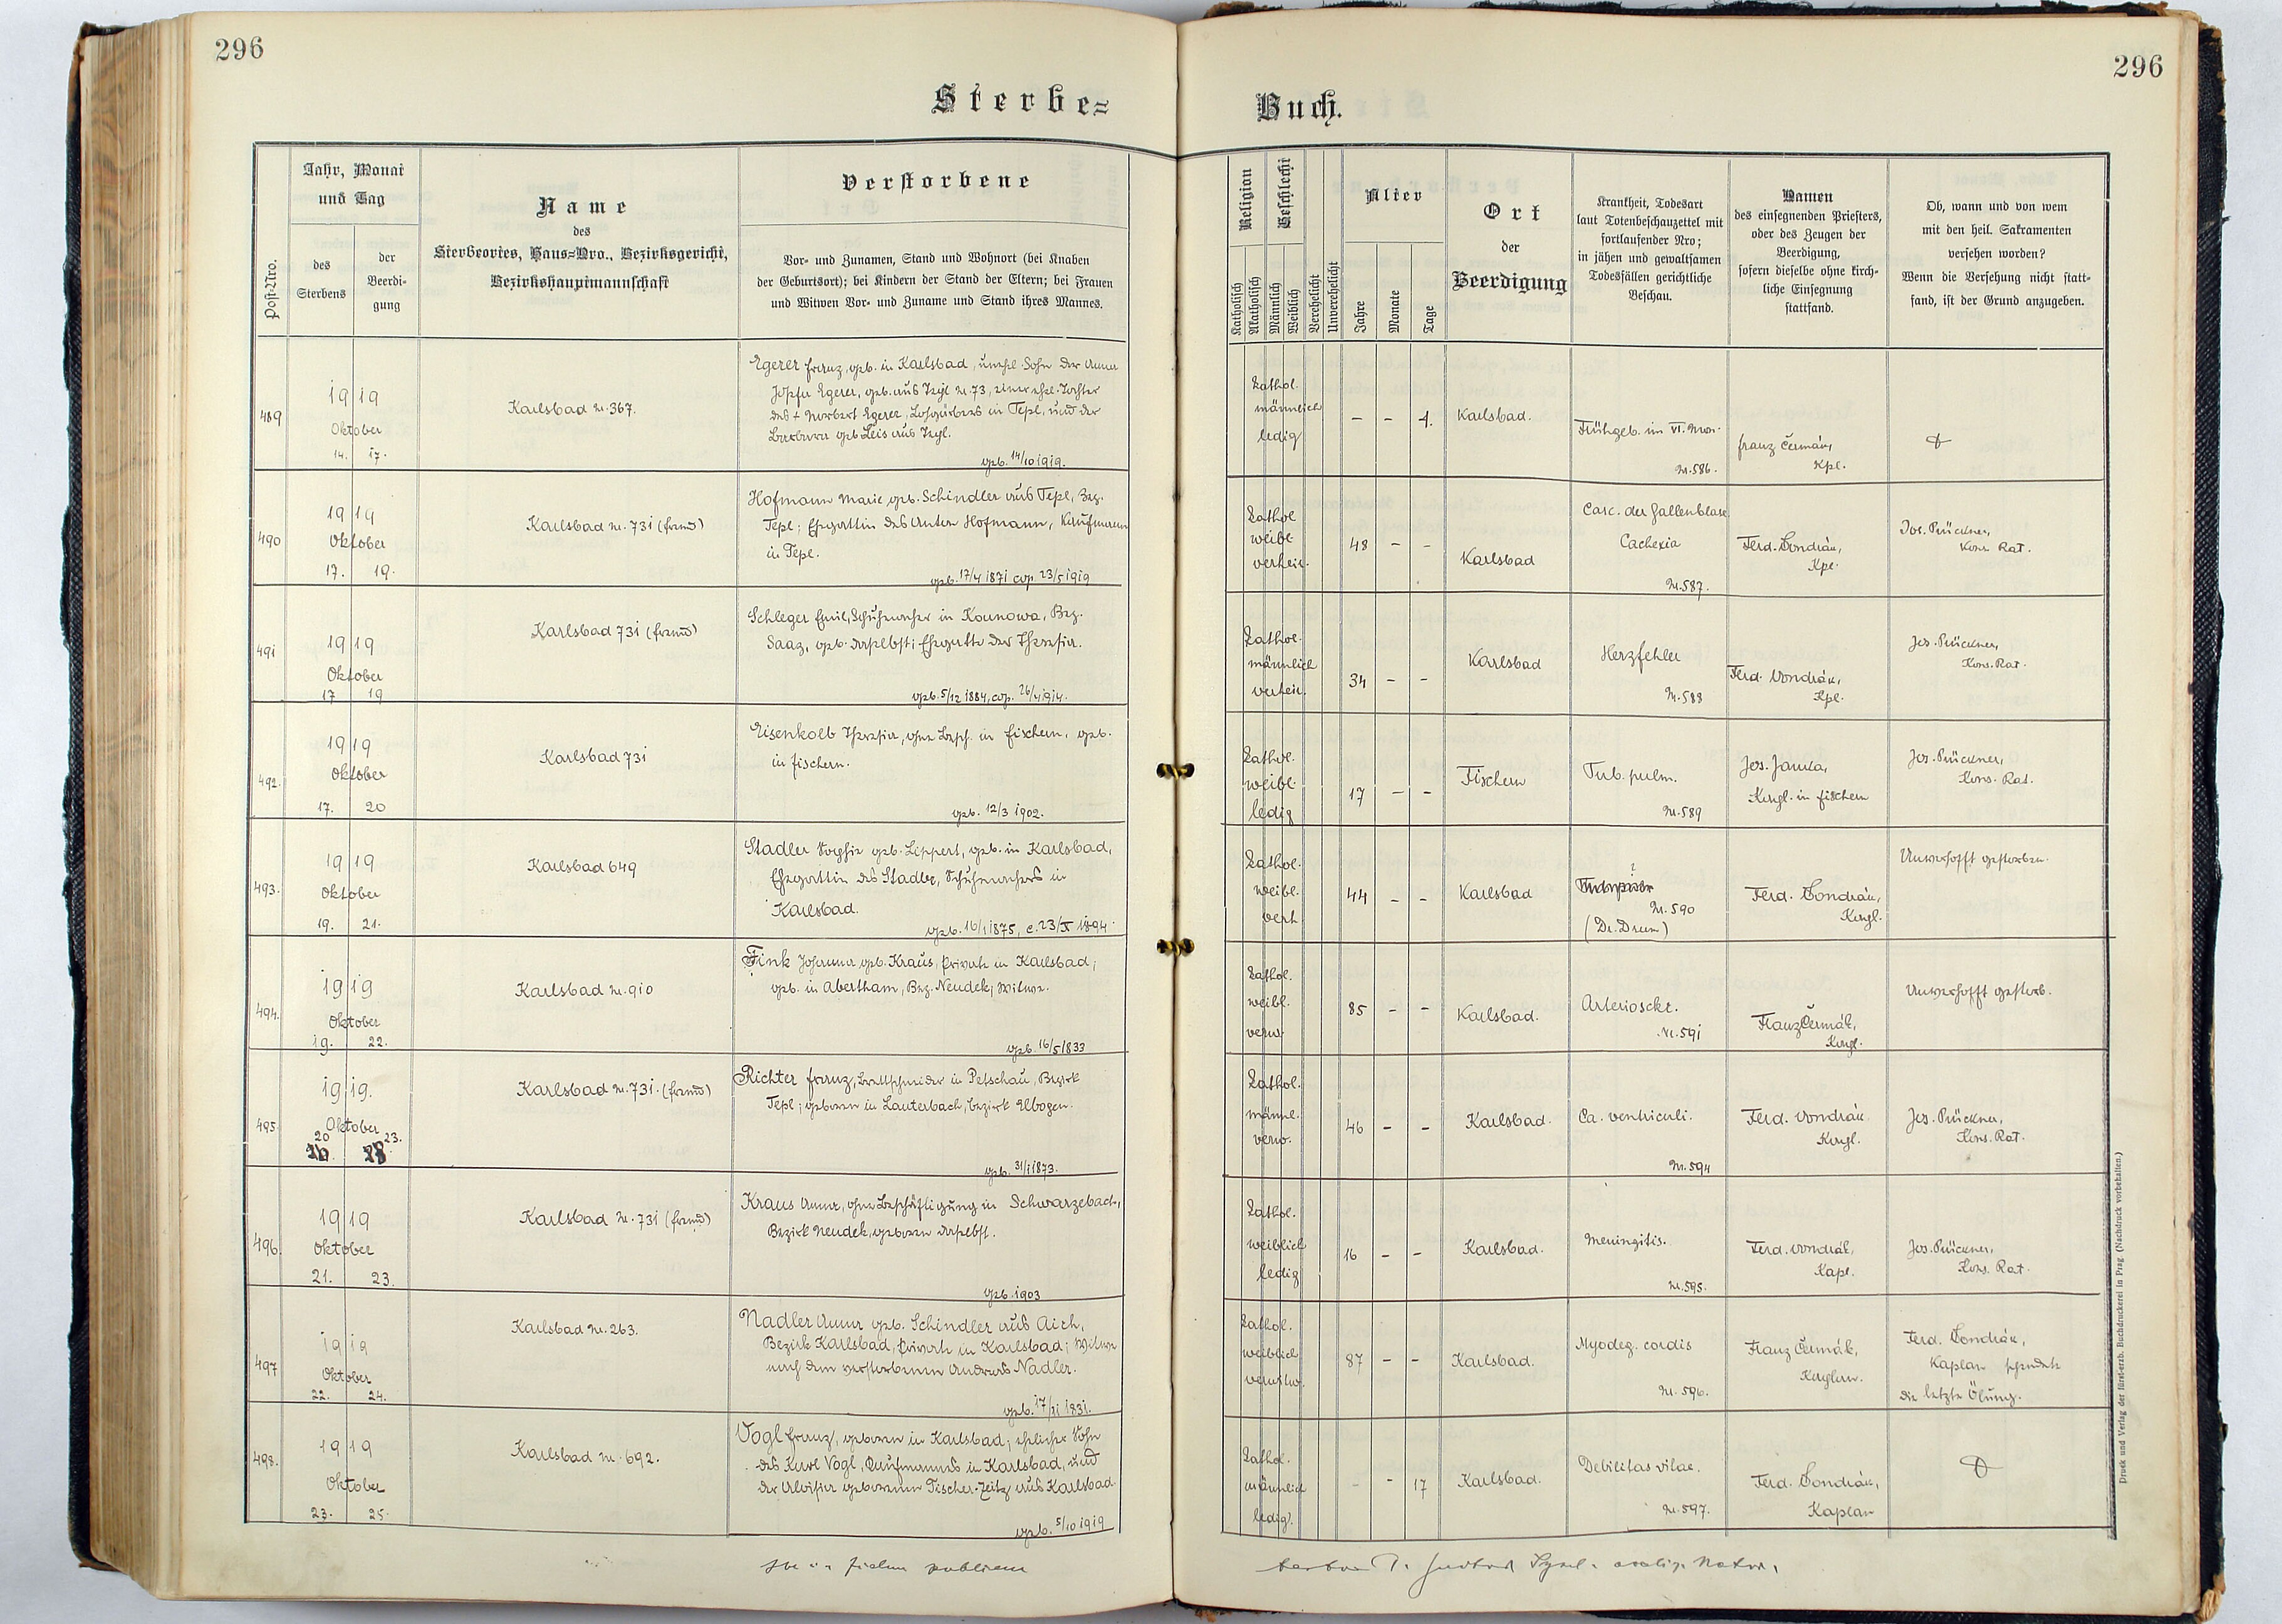 296
296
Sterbe=
Buch.
Post-Nro.
Jahr, Monat
und Tag
des
Sterbens
der
Beerdi-
gung
Name
des
Sterbeortes, Haus=Nro., Bezirksgericht,
Bezirkshauptmannschaft
Verstorbene
Vor- und Zunamen, Stand und Wohnort (bei Knaben
der Geburtsort); bei Kindern der Stand der Eltern; bei Frauen
und Witwen Vor- und Zuname und Stand ihres Mannes.
Religion
Katholisch
Akatholisch
Geschlecht
Männlich
Weiblich
Verehelicht
Unverehelicht
Alter
Jahre
Monate
Tage
Ort
der
Beerdigung
Krankheit, Todesart
laut Totenbeschauzettel mit
fortlaufender Nro;
in jähen und gewaltsamen
Todesfällen gerichtliche
Beschau.
Namen
des einsegnenden Priesters,
oder des Zeugen der
Beerdigung,
sofern dieselbe ohne kirch-
liche Einsegnung
stattfand.
Ob, wann und von wem
mit den heil. Sakramenten
versehen worden?
Wenn die Versehung nicht statt-
fand, ist der Grund anzugeben.
489
1919
Oktober
14. 17.
Karlsbad N. 367.
Egerer Franz, geb. in Karlsbad, unehel. Sohn der Anna
Josefa Egerer, geb. aus Tepl N. 73, einer ehel. Tochter
des + Norbert Egerer, Lohgärbers in Tepl, und der
Barbara geb. Leis aus Tepl.
geb. 14/10 1919.
kathol.
männlich
ledig
- - 1.
Karlsbad.
Frühgeb. im VI. Mon.
N. 586.
Franz Čermák,
Kpl.
490
1919
Oktober
17. 19.
Karlsbad N. 731 (fremd)
Hofmann Marie geb. Schindler aus Tepl, Bzg.
Tepl; Ehegattin des Anton Hofmann, Kaufmann
in Tepl.
geb. 17/4 1871 cop. 23/5 1919
kathol
weibl.
verheir.
48 - -
Karlsbad
Carc. der Gallenblase
Cachexia
N. 587.
Ferd. Vondrák,
Kpl.
Jos. Prückner,
Kons. Rat.
491
1919
Oktober
17 19
Karlsbad 731 (fremd)
Schleger Emil, Schuhmacher in Kounowa, Bzg.
Saaz, geb. daselbst; Ehegatte der Theresia.
geb. 5/12 1884, cop. 26/4 1914.
kathol.
männlich
verheir.
34 - -
Karlsbad
Herzfehler
N. 588
Ferd. Vondrák,
Kpl.
Jos. Prückner,
Kons. Rat.
492.
1919
Oktober
17. 20
Karlsbad 731
Eisenkolb Theresia, ohne Besch. in Fischern, geb.
in Fischern.
geb. 12/3 1902.
kathol.
weibl.
ledig
17 - -
Fischern
Tub. pulm.
N. 589
Jos. Janka,
in Fischern
Jos. Prückner,
Kons. Rat.
493.
1919
Oktober
19. 21.
Karlsbad 649
Stadler Sophie geb. Lippert, geb. in Karlsbad,
Ehegattin des Stadler, Schuhmachers in
Karlsbad.
geb. 16/1 1875, c. 23/X 1894
kathol.
weibl.
verh.
44 - -
Karlsbad
?
N. 590
Ferd. Vondrák,
Unverhofft gestorben.
494.
1919
Oktober
19. 22.
Karlsbad N. 910
Fink Johanna geb. Kraus, Private in Karlsbad;
geb. in Abertham, Bzg. Neudek; Witwe.
geb. 16/5 1833
kathol.
weibl.
verw.
85 - -
Karlsbad.
Arterioskl.
N. 591
Franz Čermák,
Unverhofft gestorb.
495.
1919.
Oktober
20 23.
Karlsbad N. 731. (fremd)
Richter Franz, Brettschneider in Petschau, Bezirk
Tepl; geboren in Lauterbach, Bezirk Elbogen.
geb. 31/1 1873.
kathol.
männl.
verw.
46 - -
Karlsbad.
Ca. ventriculi.
N. 594
Ferd. Vondrák
Jos. Prückner,
Kons. Rat.
496.
1919
Oktober
21. 23.
Karlsbad N. 731 (fremd)
Kraus Anna, ohne Beschäftigung in Schwarzebach,
Bezirk Neudek, geboren daselbst.
geb. 1903
kathol.
weiblich
ledig
16 - -
Karlsbad.
Meningitis.
N. 595.
Ferd. Vondrák,
Kapl.
Jos. Prückner,
Kons. Rat.
497
1919
Oktober
22. 24.
Karlsbad N. 263.
Nadler Anna geb. Schindler aus Aich,
Bezirk Karlsbad, Private in Karlsbad; Witwe
nach dem verstorbenen Andreas Nadler.
geb. 17/11 1831.
kathol.
weiblich
verwitw.
87 - -
Karlsbad.
Myodeg. cordis
N. 596.
Franz Čermák,
Ferd. Vondrák,
Kaplan spendete
die letzte Ölung.
498.
1919
Oktober
23. 25.
Karlsbad N. 692.
Vogl Franz, geboren in Karlsbad; ehelicher Sohn
des Karl Vogl, Kaufmannes in Karlsbad, und
der Aloisia geborenen Fischer-Zeitz aus Karlsbad.
geb. 5/10 1919
kathol.
männlich
ledig.
- - 17
Karlsbad.
Debilitas vitae.
N. 597.
Ferd. Vondrák,
Kaplan
Druck und Verlag der fürst-erzb. Buchdruckerei in Prag (Nachdruck vorbehalten.)